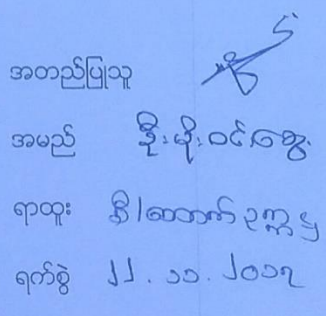 အတည်ပြုသူ
အမည် ဦးမိုးဝင်းဆွေ
ရာထူး ဒု/ထောက်ဥက္ကဋ္ဌ
ရက်စွဲ ၂၂.၁၁.၂၀၁၇